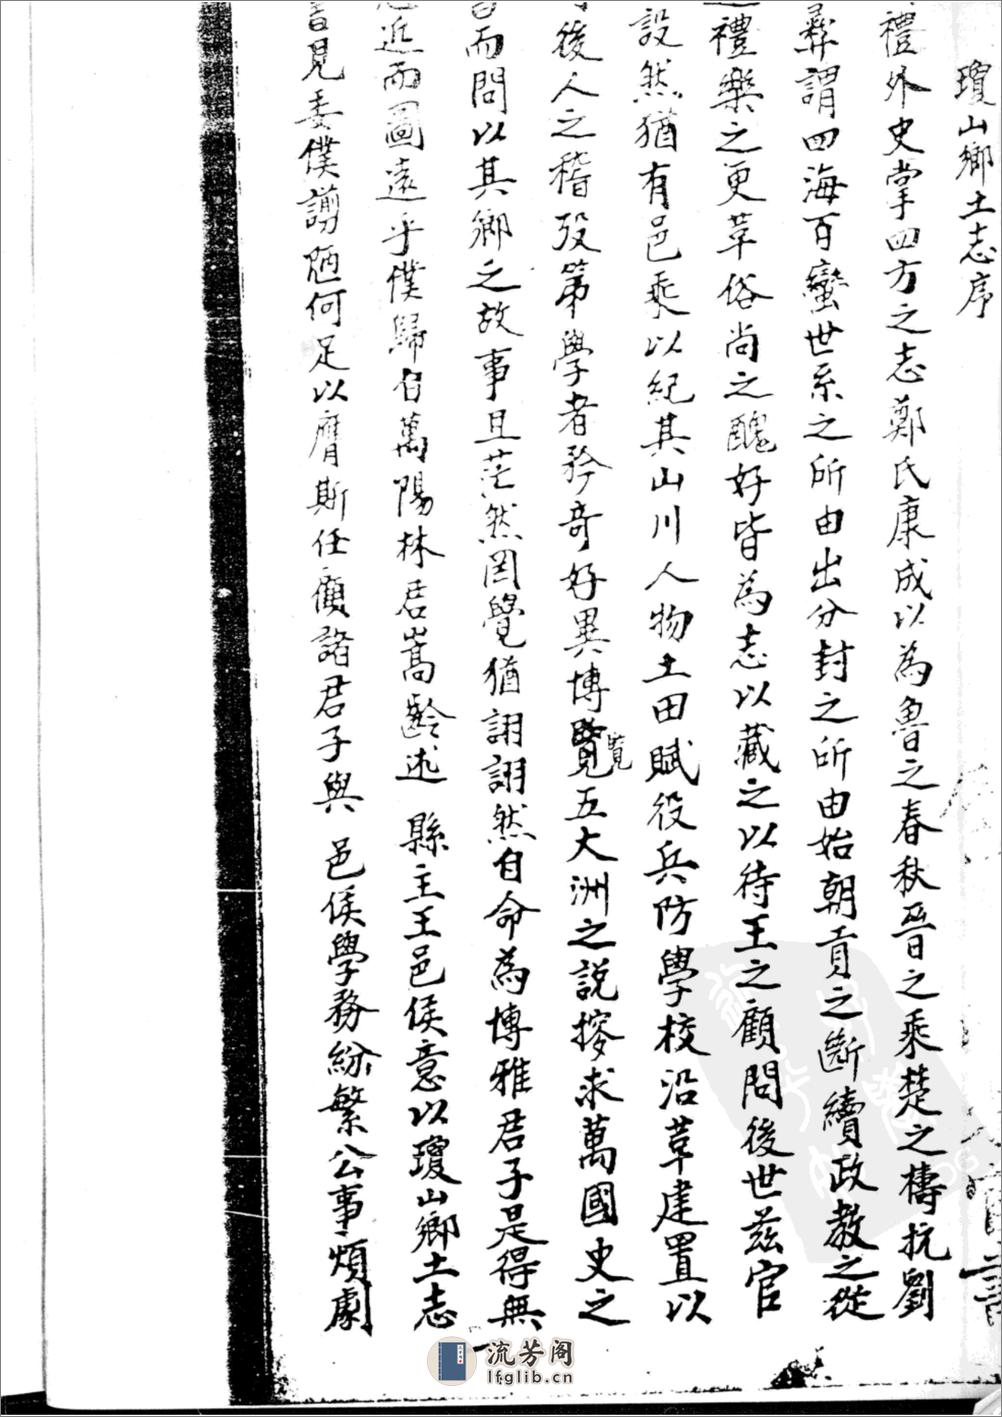 瓊山鄉土志序
禮外史掌四方之志鄭氏康成以為魯之春秋晉之乘楚之檮杌劉
彝謂四海百蠻世系之所由出分封之所由始朝貢之斷續政教之從
禮樂之更革俗尚之醜好皆為志以藏之以待王之顧問後世茲官
設然猶有邑乘以紀其山川人物土田賦役兵防學校沿革建置以
後人之稽攷第學者矜奇好異博覽五大洲之說搜求萬國史之
覽
而問以其鄉之故事且茫然罔覺猶詡詡然自命為博雅君子是得無
近而圖遠乎僕歸自萬陽林君嵩齡述 縣主王邑侯意以瓊山鄉土志
書見委僕謭陋何足以膺斯任顧諸君子與 邑侯學務紛繁公事煩劇
一
流芳阁
lfglib.cn